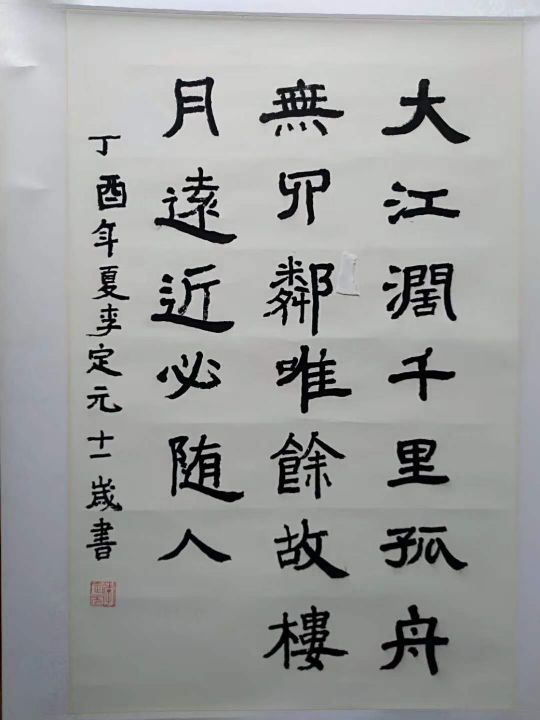 大江濶千里孤舟
無卯鄰唯餘故樓
月遠近必随人
丁酉年夏李定元十一歲書